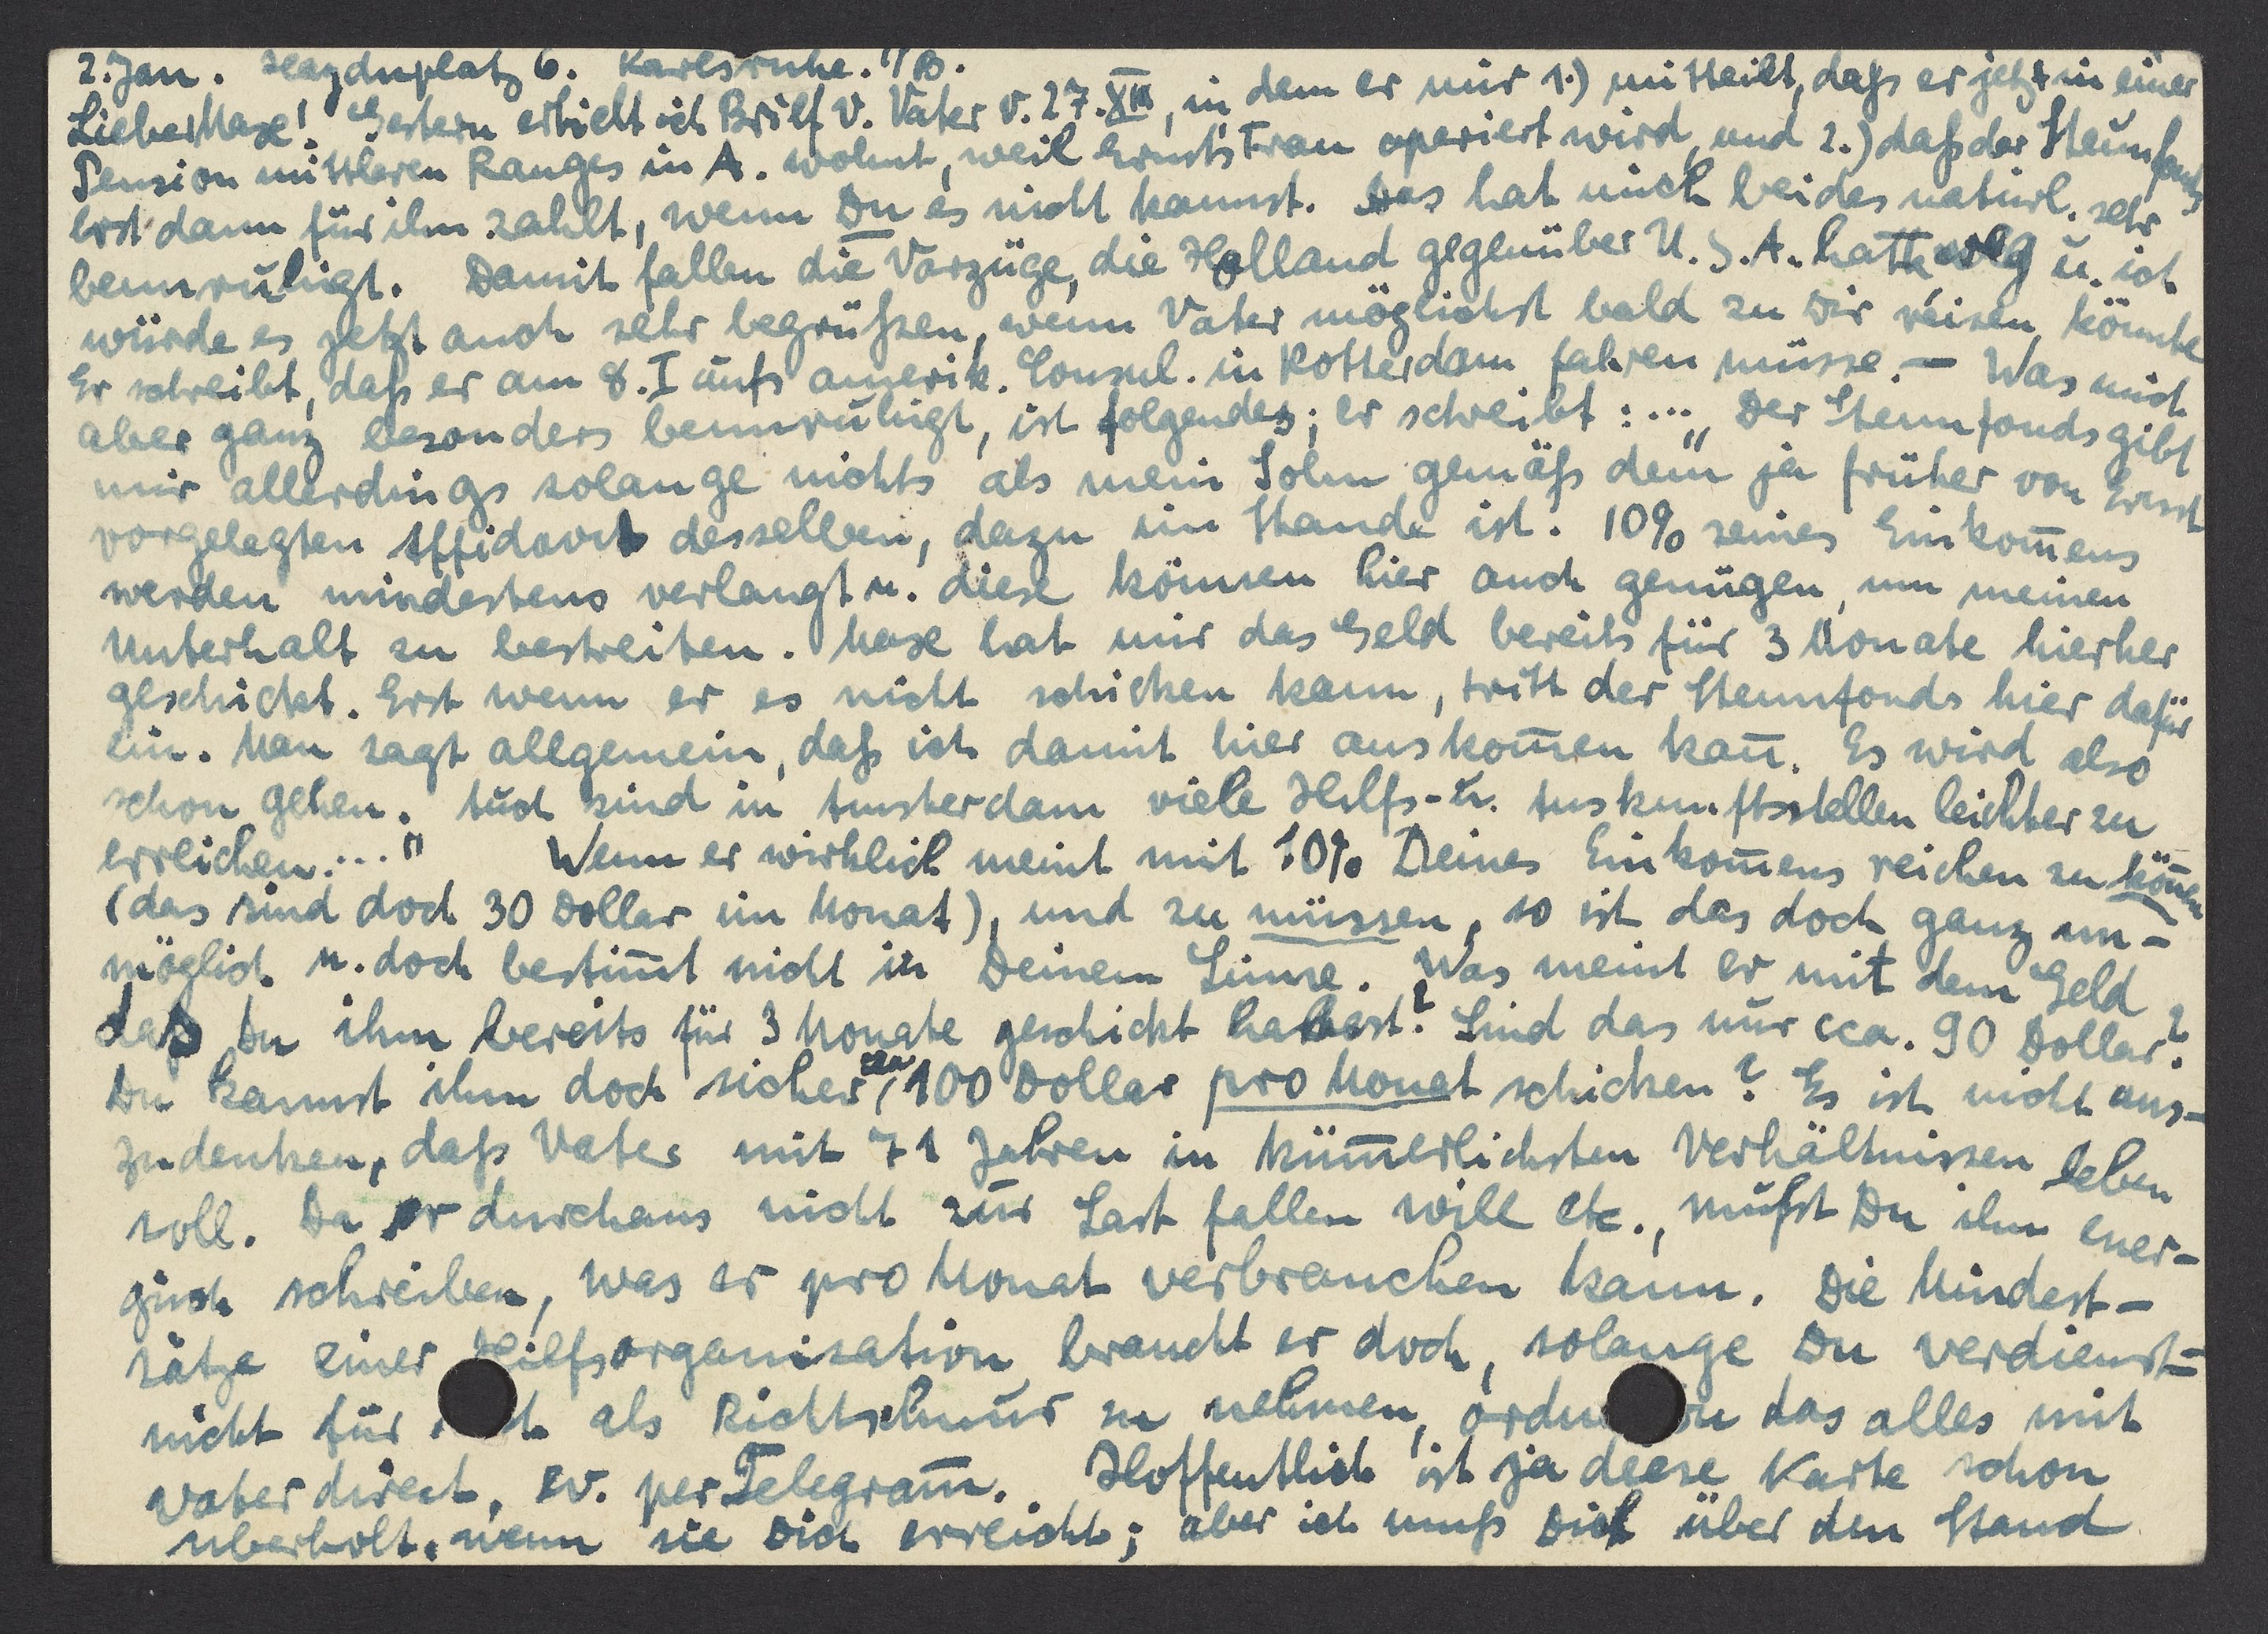 2. Jan. Haydnplatz 6. Karlsruhe. i/B.
Lieber Max! Gestern erhielt ich Brief v. Vater v. 27. XII, in dem er mir 1.) mitteilt, daß er jetzt in einer
Pension mittleren Ranges in A. wohnt, weil Ernsts Frau operiert wird, und 2.) daß der Steunfonds
erst dann für ihn zahlt, wenn Du es nicht kannst. Das hat mich beides natürl. sehr
beunruhigt. Damit fallen die Vorzüge, die Holland gegenüber U.S.A. hatte weg u. ich
würde es jetzt auch sehr begrüßen, wenn Vater möglichst bald zu Dir reisen könnte
Er schreibt, daß er am 8. I aufs amerik. Consul. in Rotterdam fahren müsse. – Was mich
aber ganz besonders beunruhigt, ist folgendes; er schreibt: ... „Der Steunfonds gibt
mir allerdings solange nichts als mein Sohn gemäß dem ja früher von Ernst
vorgelegten Affidavit desselben, dazu im Stande ist. 10% seines Einkom̅ens
werden mindestens verlangt u. diese können hier auch genügen, um meinen
Unterhalt zu bestreiten. Max hat mir das Geld bereits für 3 Monate hierher
geschickt. Erst wenn er es nicht schicken kann, tritt der Steunfonds hier dafür
ein. Man sagt allgemein, daß ich damit hier auskom̅en kan̅. Es wird also
schon gehen. Auch sind in Amsterdam viele Hilfs- u. Auskunftsstellen leichter zu
erreichen ..." Wenn er wirklich meint mit 10% Deines Einkom̅ens reichen zu kön̅en
(das sind doch 30 Dollar im Monat), und zu müssen, so ist das doch ganz un-
möglich u. doch bestim̅t nicht in Deinem Sinne. Was meint er mit dem Geld
das Du ihm bereits für 3 Monate geschickt habest? Sind das nur cca. 90 Dollar?
Du kannst ihm doch sicher 100 Dollar pro Monat schicken? Es ist nicht aus-
zudenken, daß Vater mit 71 Jahren in küm̅erlichsten Verhältnissen leben
soll. Da er durchaus nicht zur Last fallen will etc., mußt Du ihm ener-
gisch schreiben, was er pro Monat verbrauchen kann. Die Mindest-
sätze einer Hilfsorganisation braucht er doch, solange Du verdienst
nicht für als Richtschnur zu nehmen, das alles mit
Vater direct, ev. per Telegram̅. Hoffentlich ist ja diese Karte schon
überholt, wenn sie Dich erreicht; aber ich muß Dich über den Stand